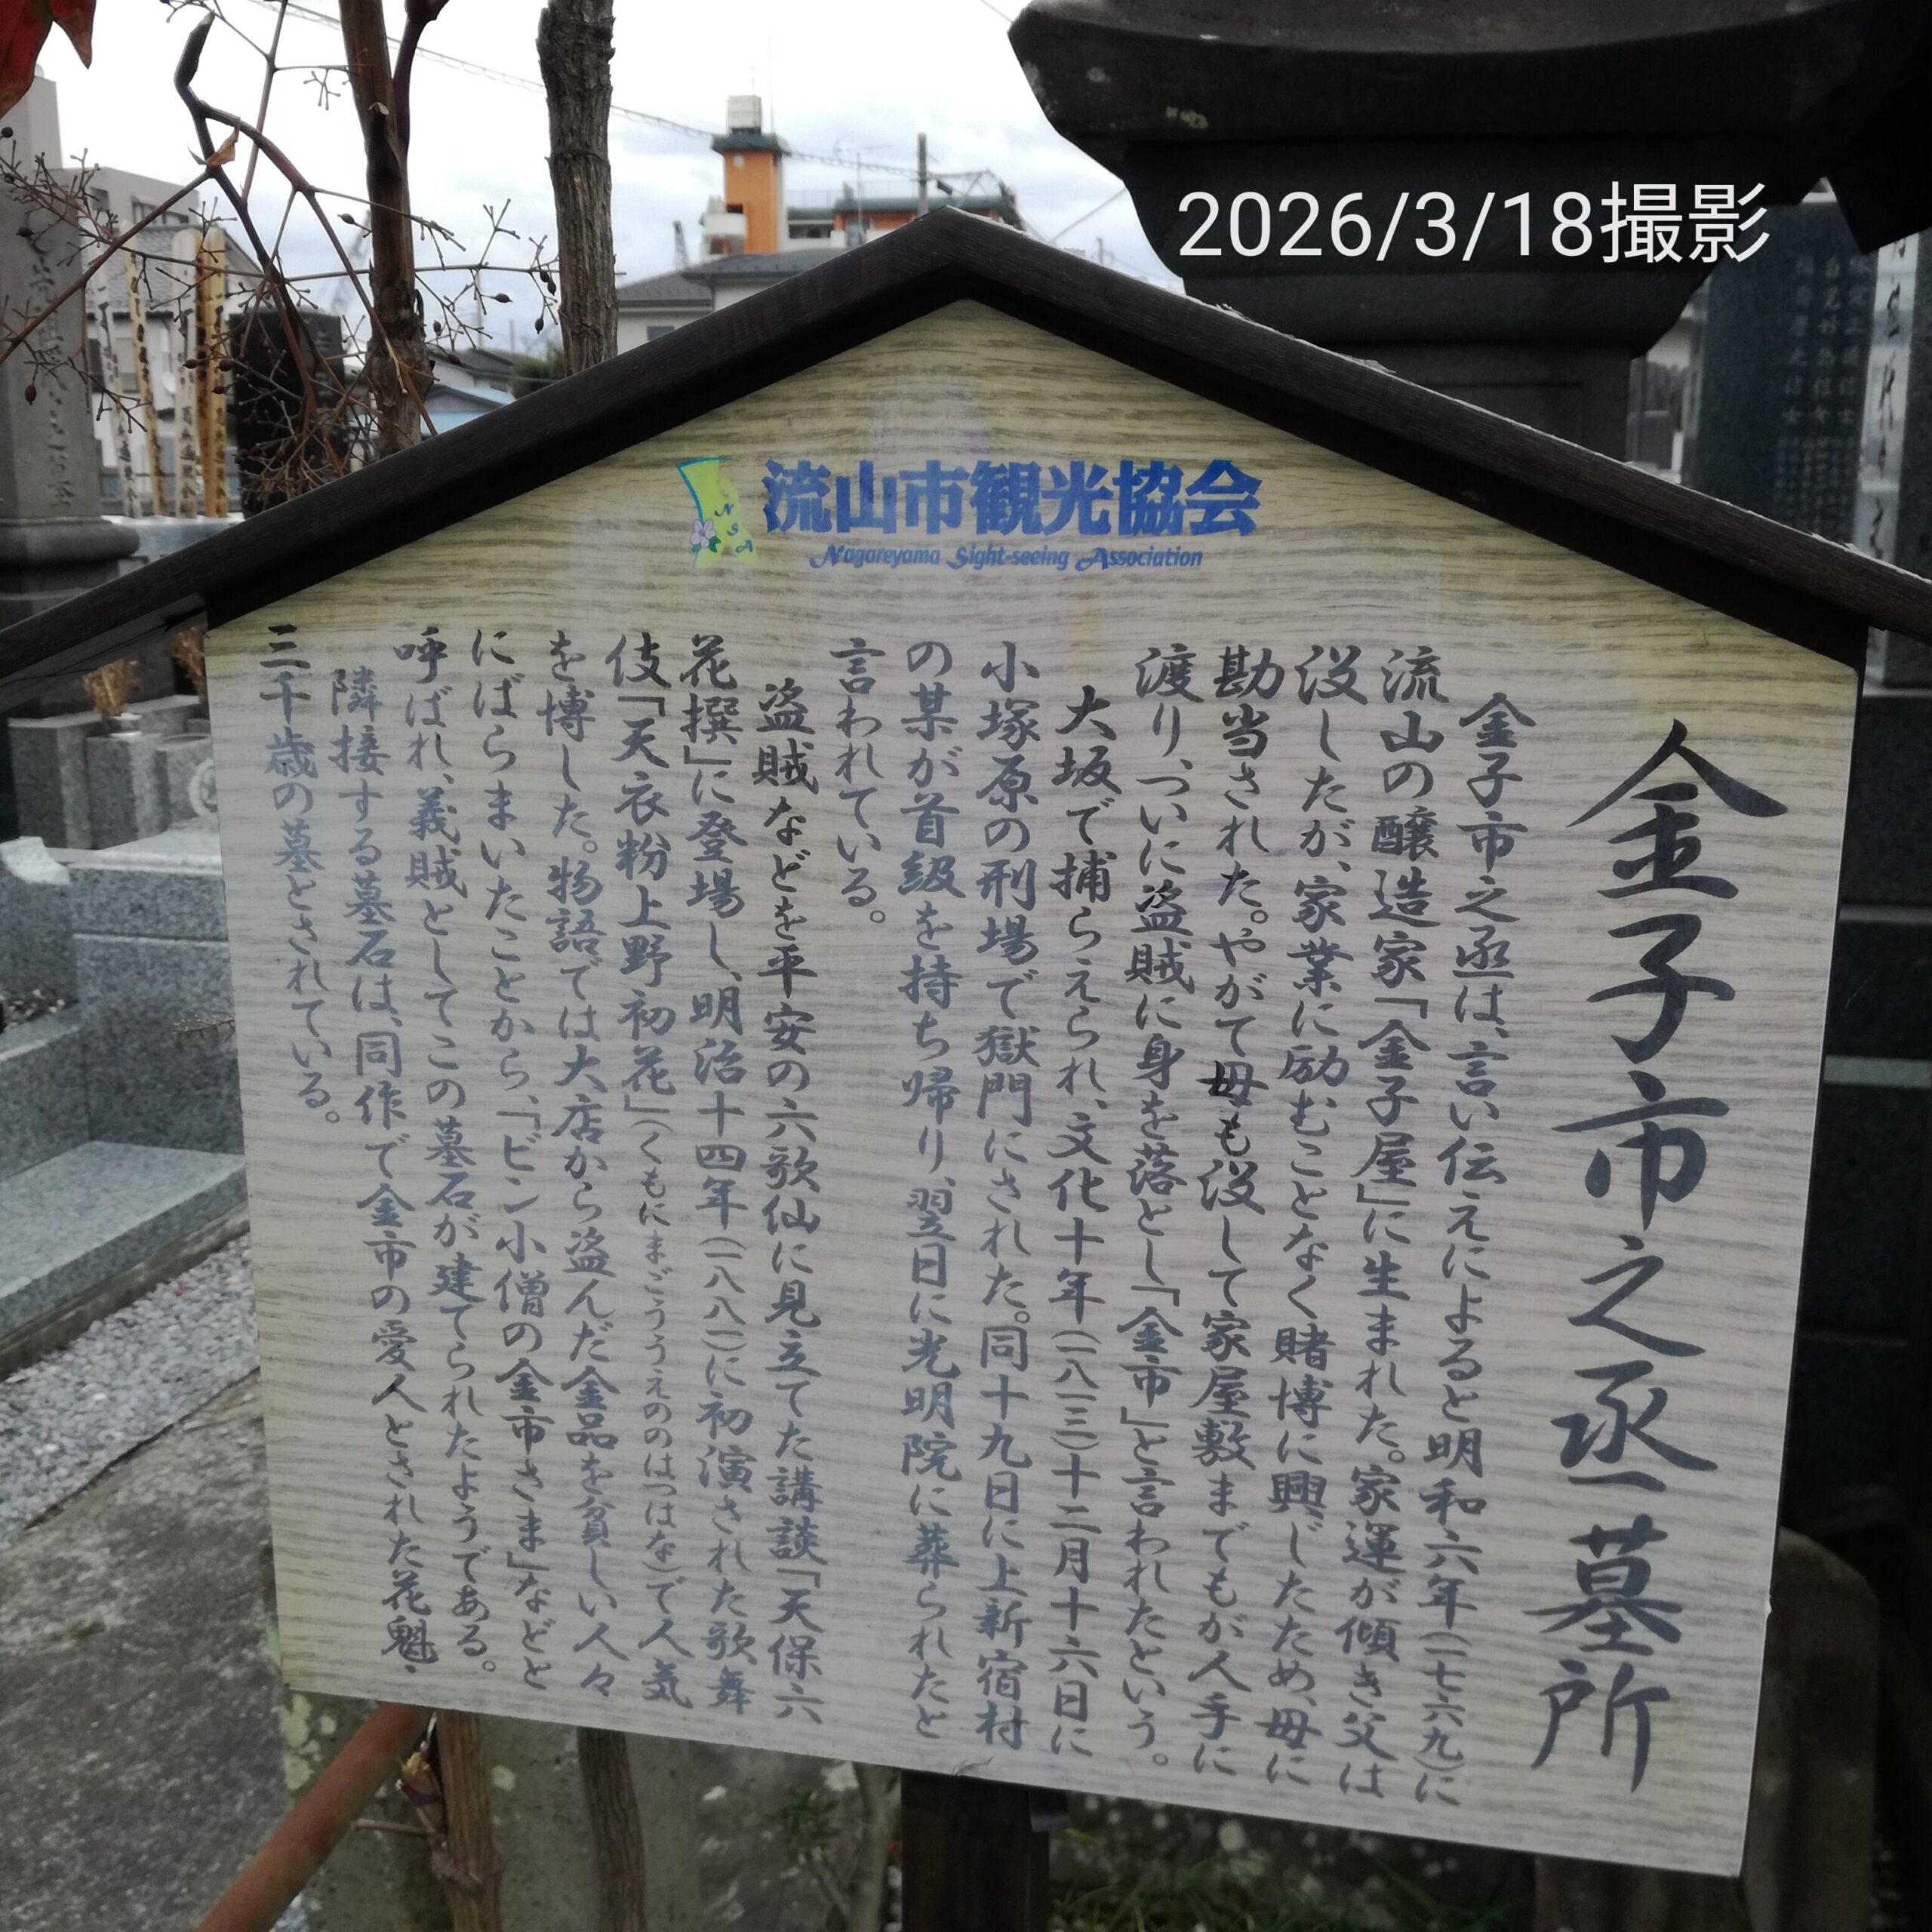 2026/3/18撮影
流山市観光協会
Nagareyama Sight-seeing Association
NSA
金子市之丞墓所
金子市之丞は、言い伝えによると明和六年(一七六九)に
流山の醸造家「金子屋」に生まれた。家運が傾き父は
没したが、家業に励むことなく賭博に興じたため、母に
勘当された。やがて母も没して家屋敷までもが人手に
渡り、ついに盗賊に身を落とし「金市」と言われたという。
大坂で捕らえられ、文化十年(一八一三)十二月十六日に
小塚原の刑場で獄門にされた。同十九日に上新宿村
の某が首級を持ち帰り、翌日に光明院に葬られたと
言われている。
盗賊などを平安の六歌仙に見立てた講談「天保六
花撰」に登場し、明治十四年(一八八一)に初演された歌舞
伎「天衣粉上野初花」(くもにまごううえののはつはな)で人気
を博した。物語では大店から盗んだ金品を貧しい人々
にばらまいたことから、「ビン小僧の金市さま」などと
呼ばれ、義賊としてこの墓石が建てられたようである。
隣接する墓石は、同作で金市の愛人とされた花魁・
三千歳の墓とされている。